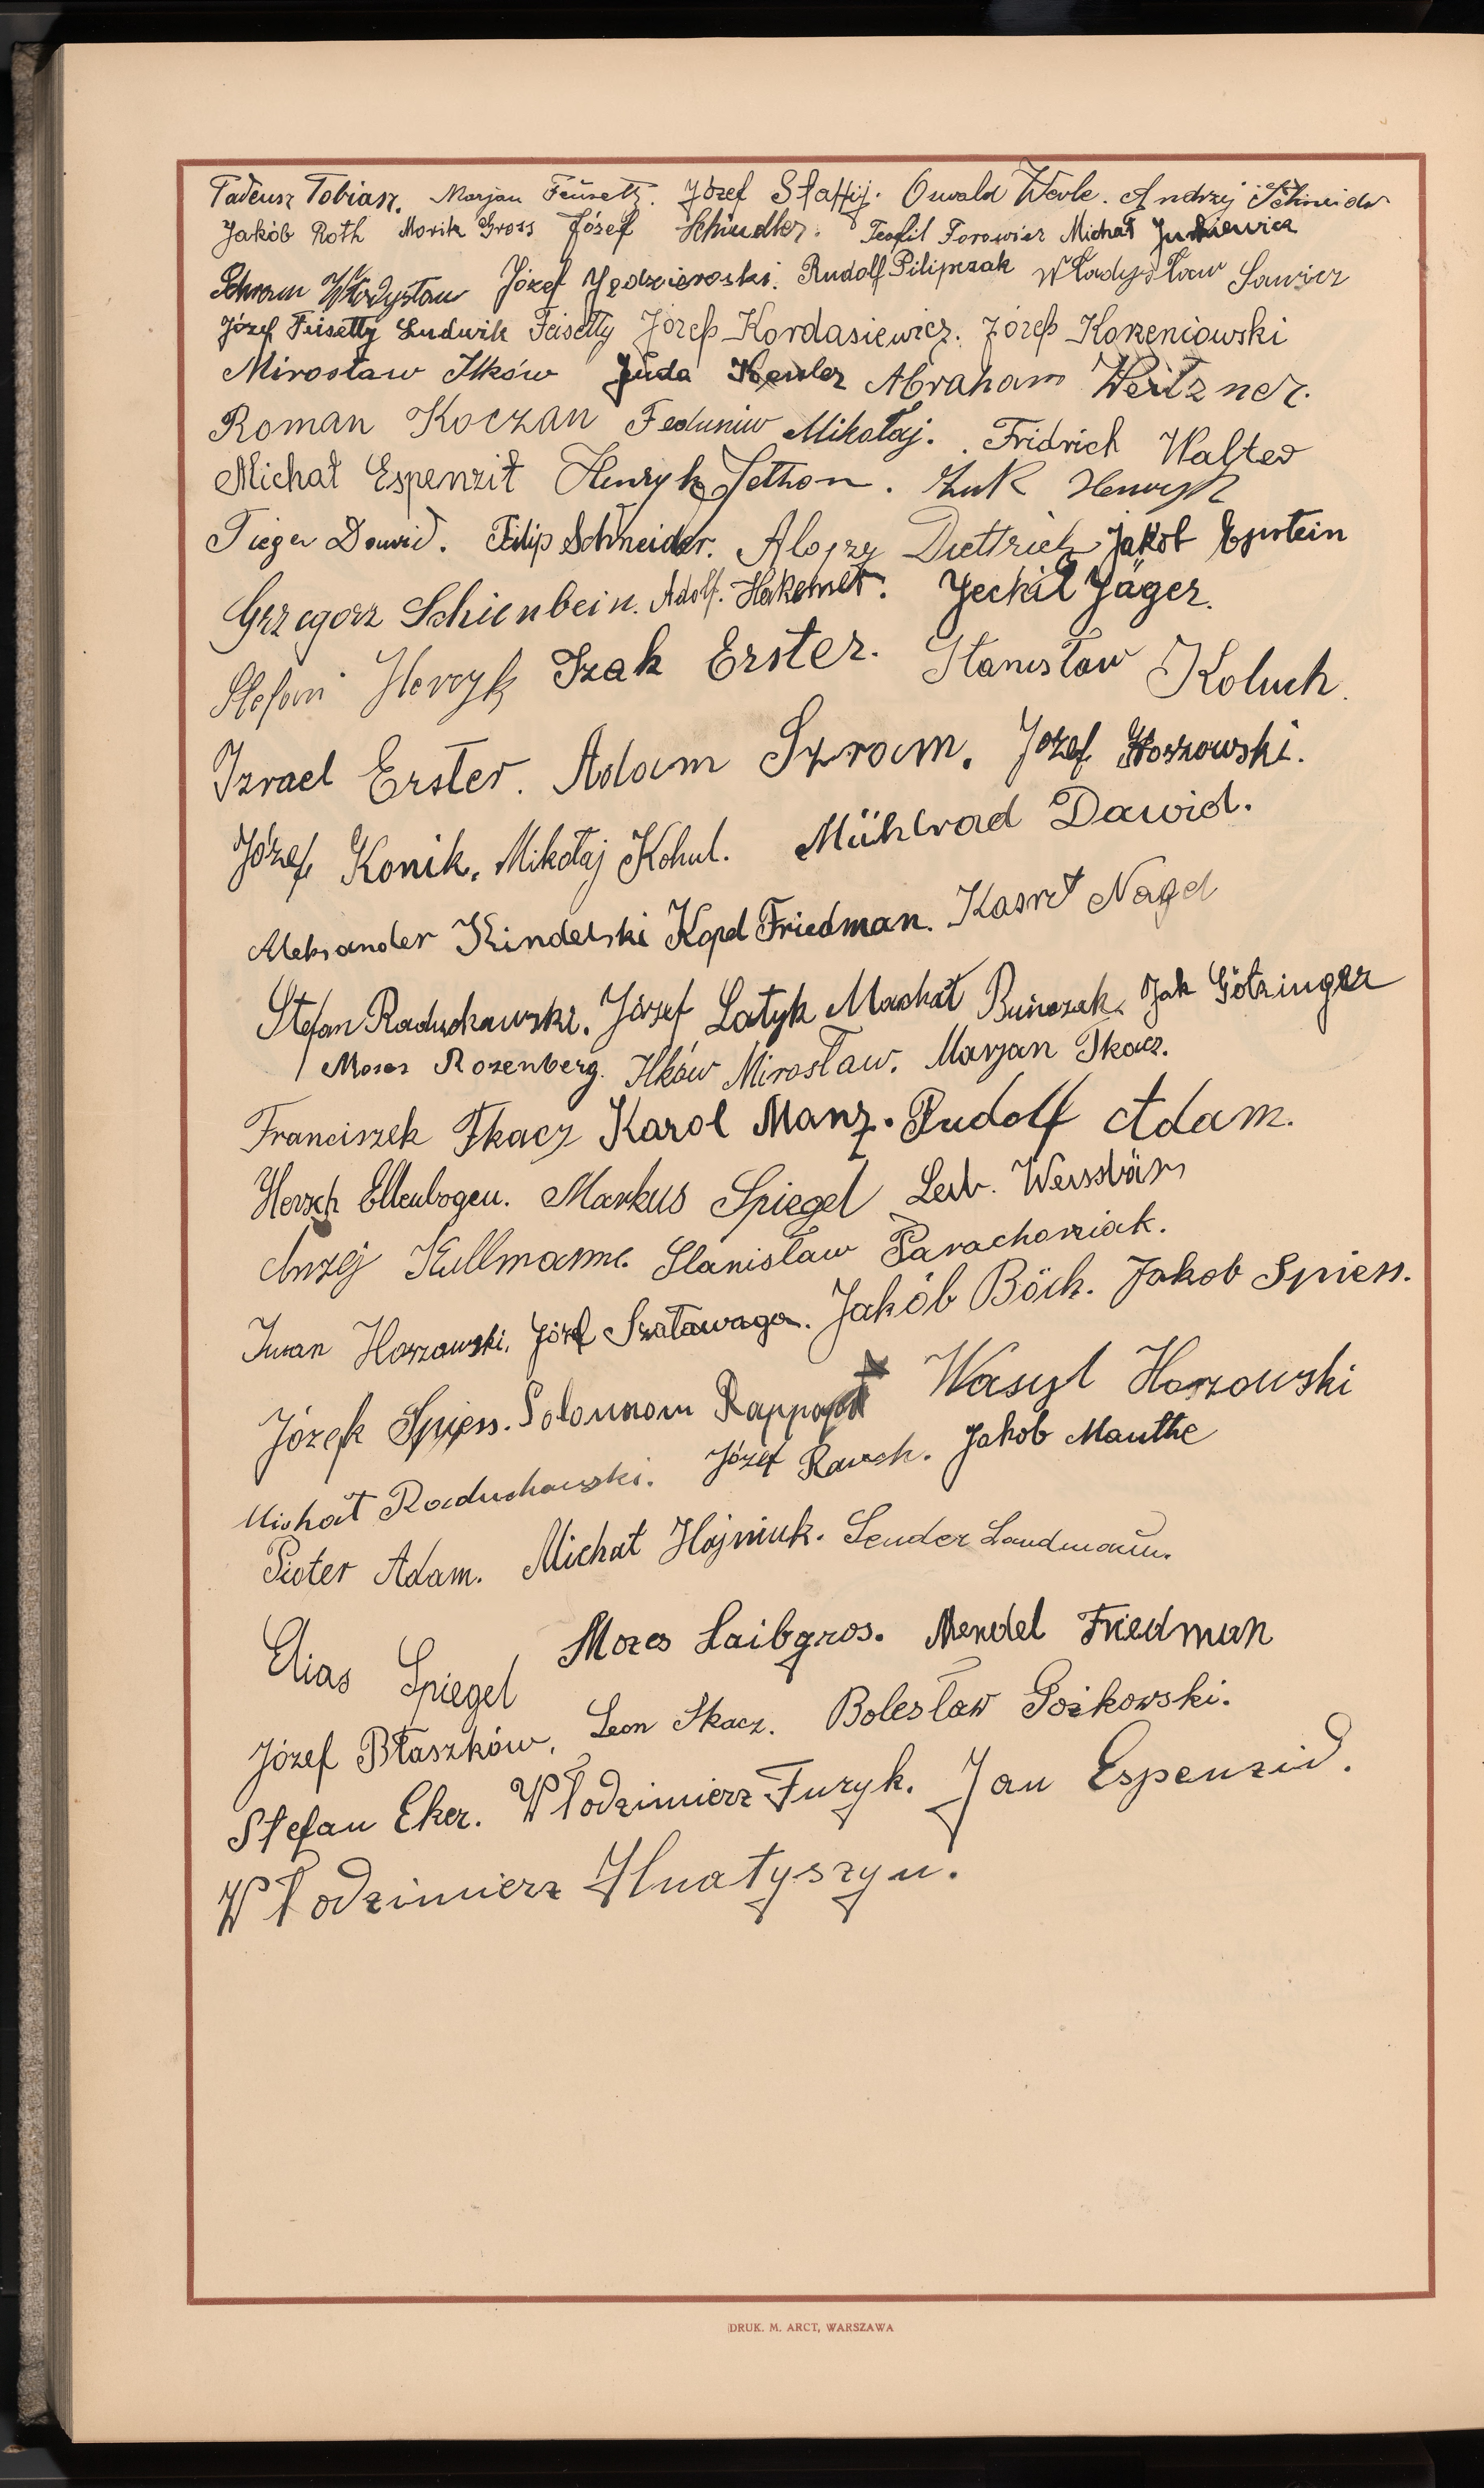 Tadeusz Tobiasz. Marjan Józef Oswald Werle. Andrzej Schneider
Jakób Roth Moritz Gross Józef Schindler. Teofil Torowicz Michał
Schram Władysław Józef Rudolf Pilipczak Władysław Sawicz
Józef Feisetty Ludwik Feisetty Józef Kordasiewicz. Józef Korzeniowski
Mirosław Ilków Juda Abraham Weitzner.
Roman Koczan Feduniw Mikołaj. Fridrich Walter
Michał Espenzit Henryk Jethon. Żuk Henryk
Tieger Dawid. Filip Schneider. Alojzy Diettrich Jakób Epstein
Grzegorz Schienbein. Adolf. Jeckil Jäger.
Stefan Izak Erster. Stanisław Koluch.
Izrael Erster. Adam Szram. Józef Horzowski.
Józef Konik. Mikołaj Kohut. Mühlrad Dawid.
Aleksander Kindelski Kopel Friedman. Nagel
Stefan Raduchawski. Józef Łatyk Machał Buńczak. Jak Götzinger
Moses Rozenberg. Ilków Mirosław. Marjan Tkacz.
Franciszek Tkacz Karol Manz. Rudolf Adam.
Hersch Ellenbogen. Markus Spiegel Leib. Weissbär
Kullmann. Stanisław Parachoniak.
Iwan Horzowski. Józef Szaławaga. Jakób Böck. Jakob Spiess.
Józef Spiess. Solomon Rappaport Wasyl Horzowski
Michał Raduchowski. Józef Rauch. Jakob Manthe
Pioter Adam. Michał Hojniuk. Sender Landmann.
Elias Spiegel Mozes Laibgros. Mendel Friedman
Józef Błaszków. Leon Tkacz. Bolesław Gożkowski.
Stefan Eker. Włodzimierz Furyk. Jan Espenzid.
Włodzimierz Hnatyszyn.
DRUK. M. ARCT, WARSZAWA